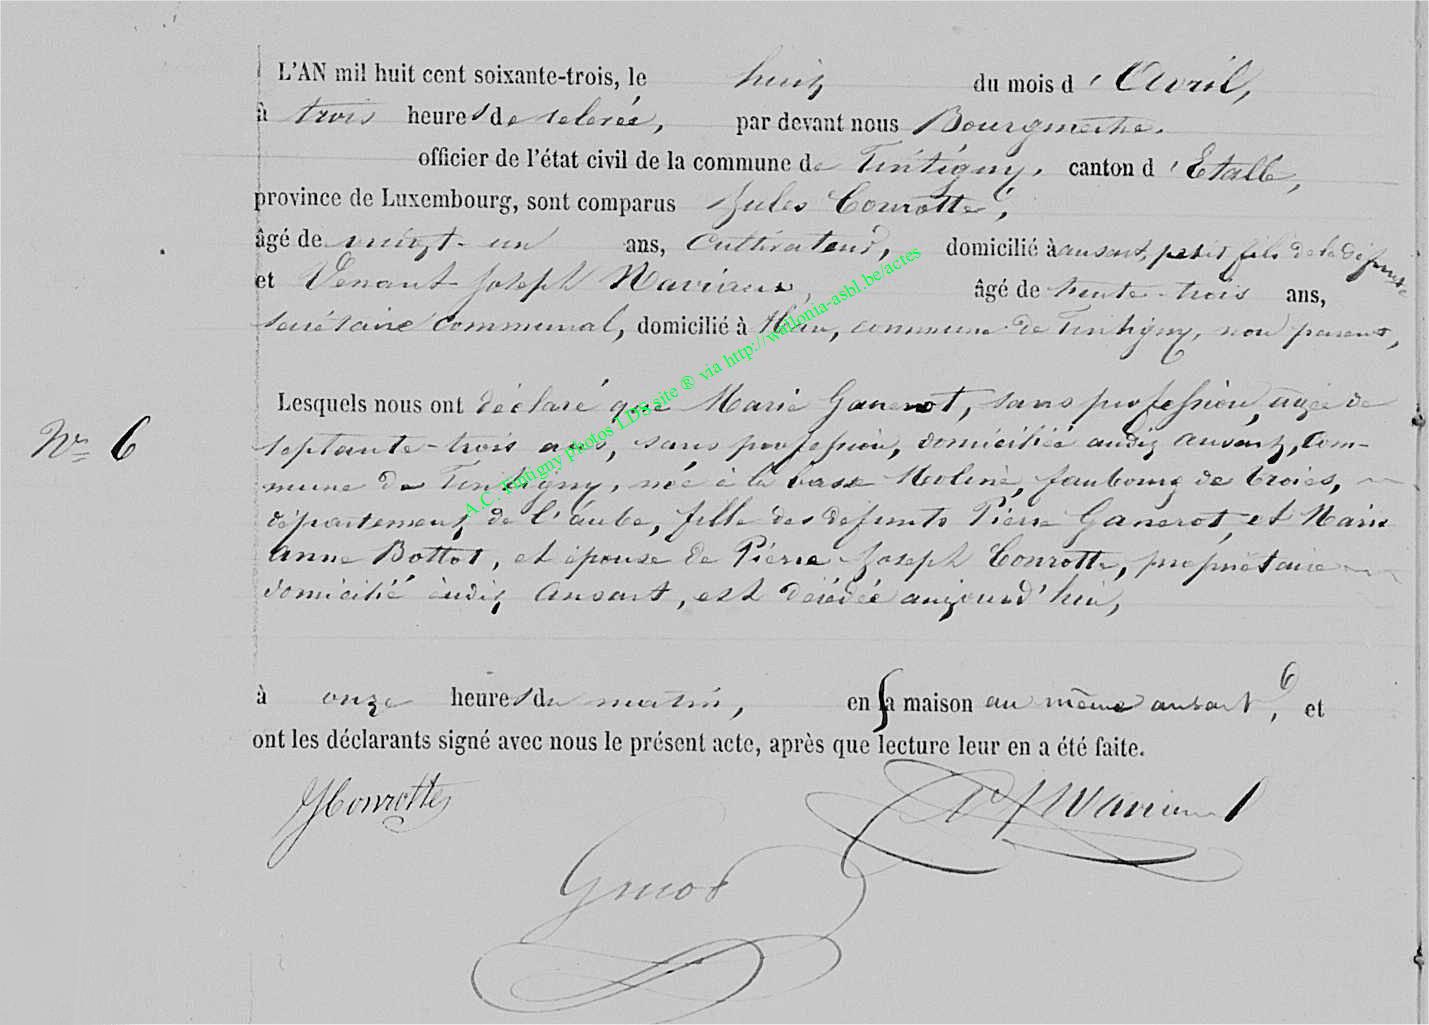 L'AN mil huit cent soixante-trois, le huit du mois d'Avril,
à trois heures de relevée, par devant nous Bourgmestre.
officier de l'état civil de la commune de Tintigny, canton d'Etalle,
province de Luxembourg, sont comparus Jules Conrotte,
âgé de vingt-un ans, cultivateur, domicilié à ansart, petit fils de la défunte
et Venant Joseph Naviaux, âgé de trente-trois ans,
secrétaire communal, domicilié à commune de Tintigny, non parent,
Lesquels nous ont déclaré que Marie Ganerot, sans profession, agée de
N° 6
septante-trois ans, sans profession, domiciliée audit ansart, com-
mune de Tintigny, née à la basse Moline, faubourg de troies,
département de l'aube, fille des defunts Pierre Ganerot, et Marie
anne Bottot, et épouse de Pierre Joseph Conrotte, propriétaire
domicilié audit ansart, est décédée aujourd'hui,
à onze heures du matin, en sa maison au même ansart, 6 et
ont les déclarants signé avec nous le présent acte, après que lecture leur en a été faite.
JConrotte
A.C. Tintigny photos LDS site ® via http://wallonia-asbl.be/actes